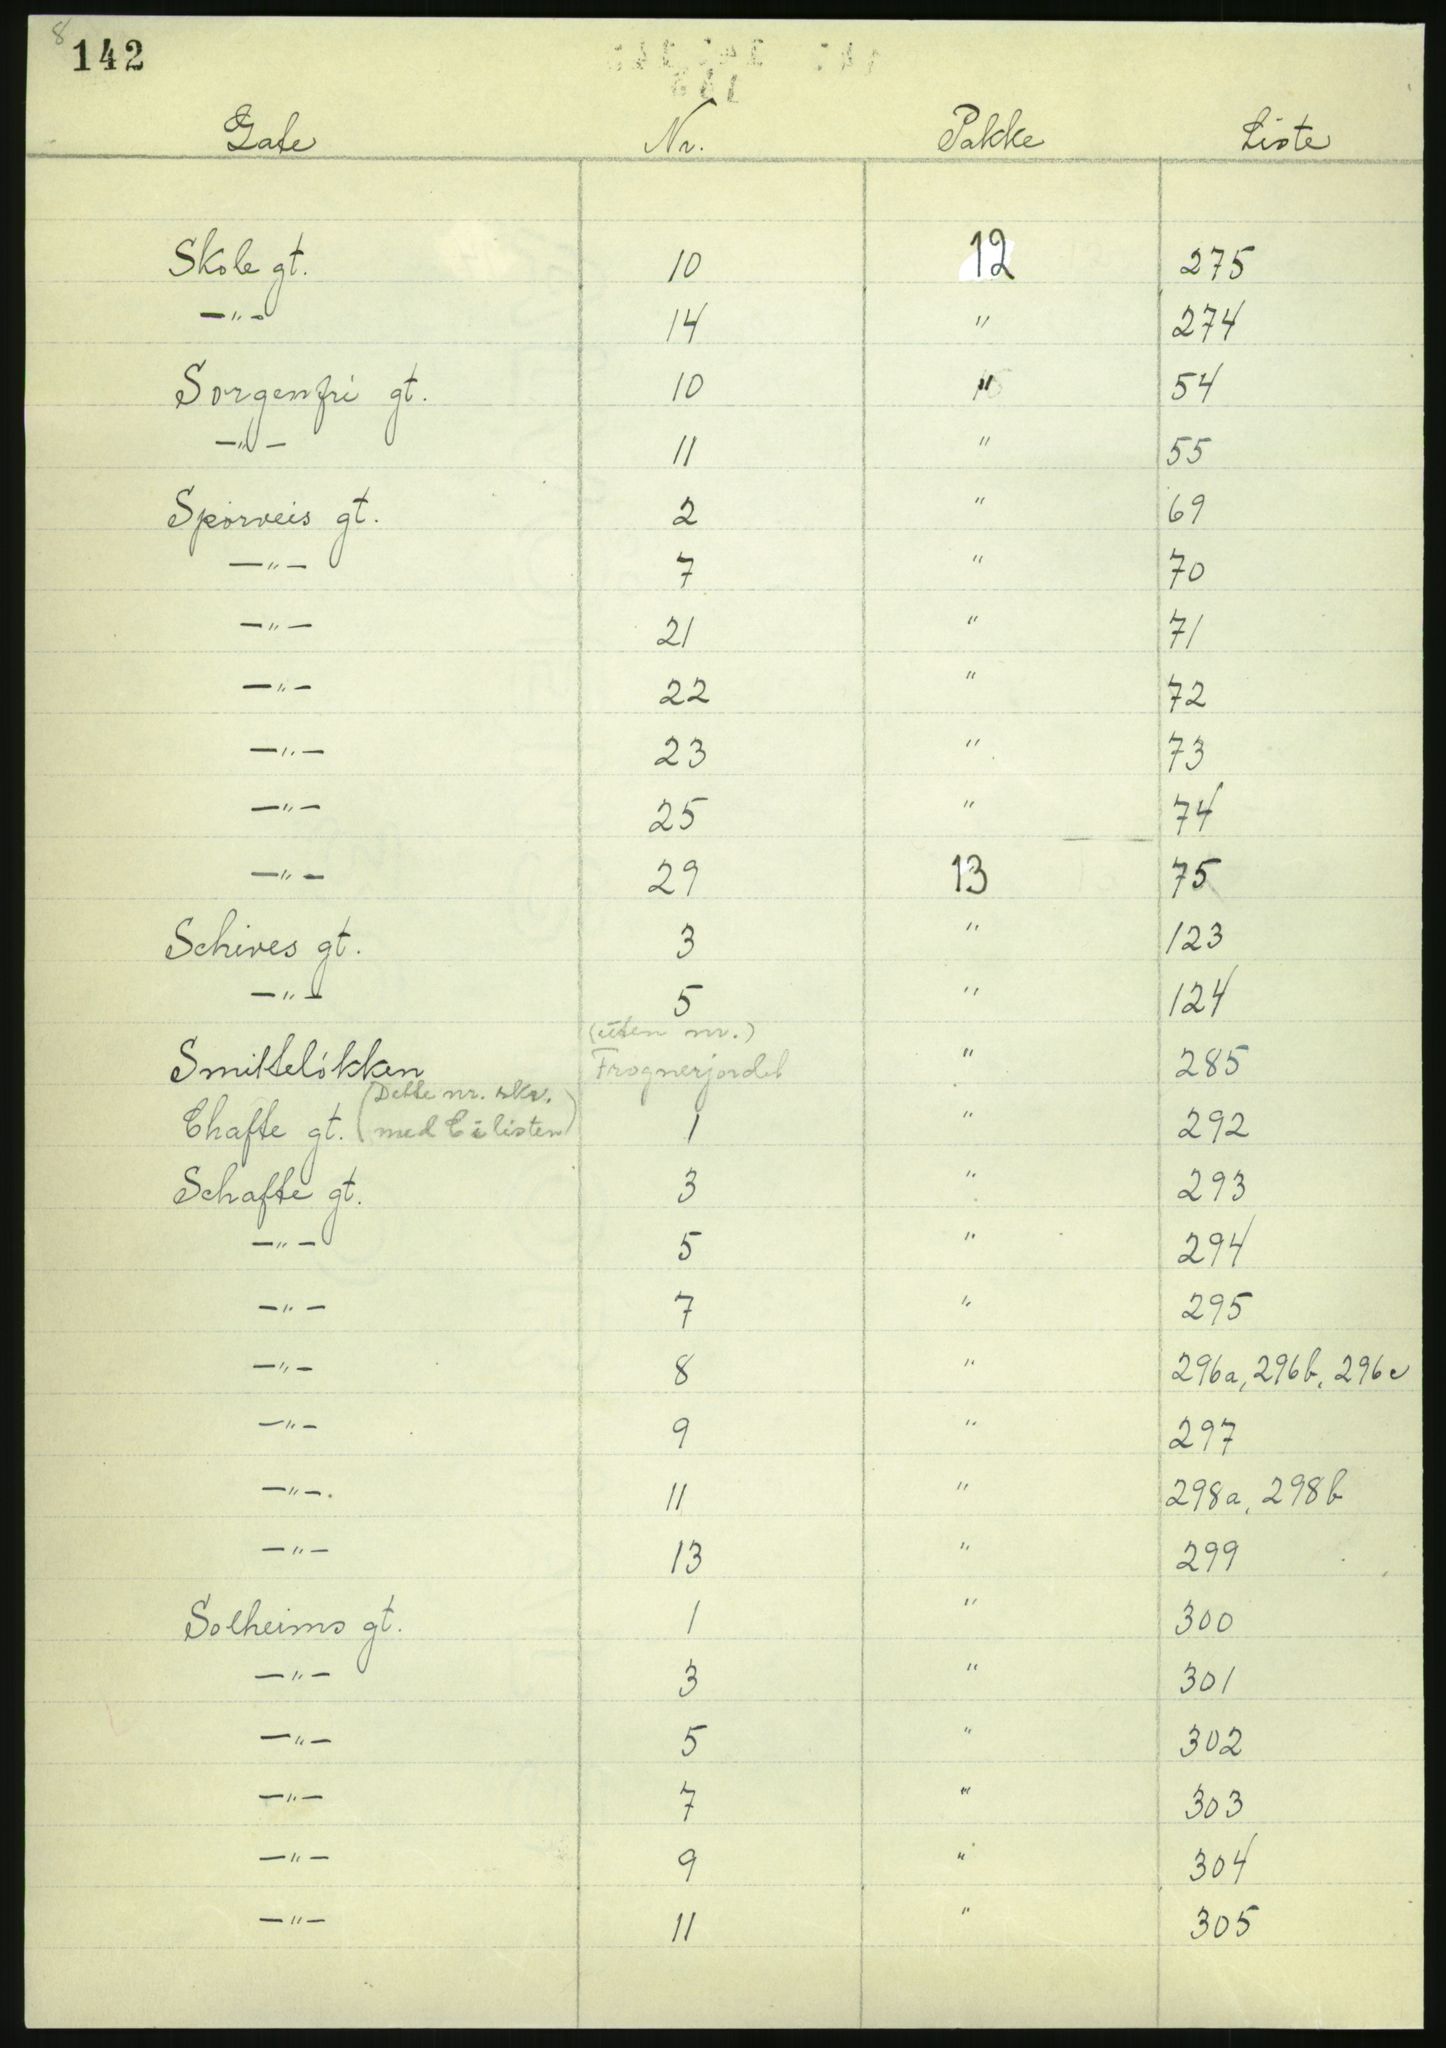 8
142
Gate Nr. Pakke Liste
Skole gt. 10 12 275
—"— 14 " 274
Sorgenfri gt. 10 " 54
—"— 11 " 55
Sporveis gt. 2 " 69
—"— 7 " 70
—"— 21 " 71
—"— 22 " 72
—"— 23 " 73
—"— 25 " 74
—"— 29 13 75
Schives gt. 3 " 123
—"— 5 " 124
(uten nr.)
Smitteløkken Frognerjordet " 285
(Dette nr. skr.
Chafte gt. med C i listen) 1 " 292
Schafte gt. 3 " 293
—"— 5 " 294
—"— 7 " 295
—"— 8 " 296a, 296b, 296c
—"— 9 " 297
—"—. 11 " 298a, 298b
—"— 13 " 299
Solheims gt. 1 " 300
—"— 3 " 301
—"— 5 " 302
—"— 7 " 303
—"— 9 " 304
—"— 11 " 305